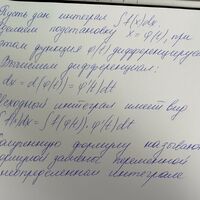 Пусть дан интеграл ∫f(x)dx.
Делаем подстановку x = φ(t), при
этом функция φ(t) дифференцируе
Отыскиваем дифференциал:
dx = d(φ(t)) = φ'(t)dt
Исходный интеграл имеет вид
∫f(x)dx = ∫f(φ(t))·φ'(t)dt
Полученную формулу называют
формулой замены переменной
неопределенном интеграле.